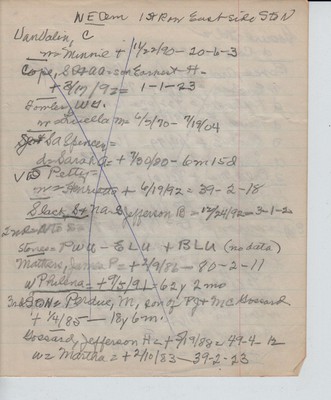 NE Cem 1st Row East side S to N
VanValin, C
w Minnie + 11/22/90 - 20-6-3
Cope, S & AA = son Earnest H -
+ 8/17/92 = 1-1-23
Fowler, WH.
w Luella m= 4/5/70 - 7/18/04
SA Spencer =
d= Sarah + 7/30/80 - 6m 15d
Petty =
w= Henrietta + 6/19/92 = 39-2-18
Slack, S + Na = S Jefferson B = 12/24/92 = 3-1-20
2nd Row
stones = PWU - ELU + BLU (no data)
Mathers, James P = + 2/9/86 - 80-2-11
w Philena = + 9/5/91 = 62y 2mo
3rd Perdue, M, son of PJ + MC Gossard
+ 1/4/85 - 18y 6m.
Gossard, Jefferson H = + 5/19/88 = 49-4-12
w = Martha = + 2/10/83 - 39-2-23